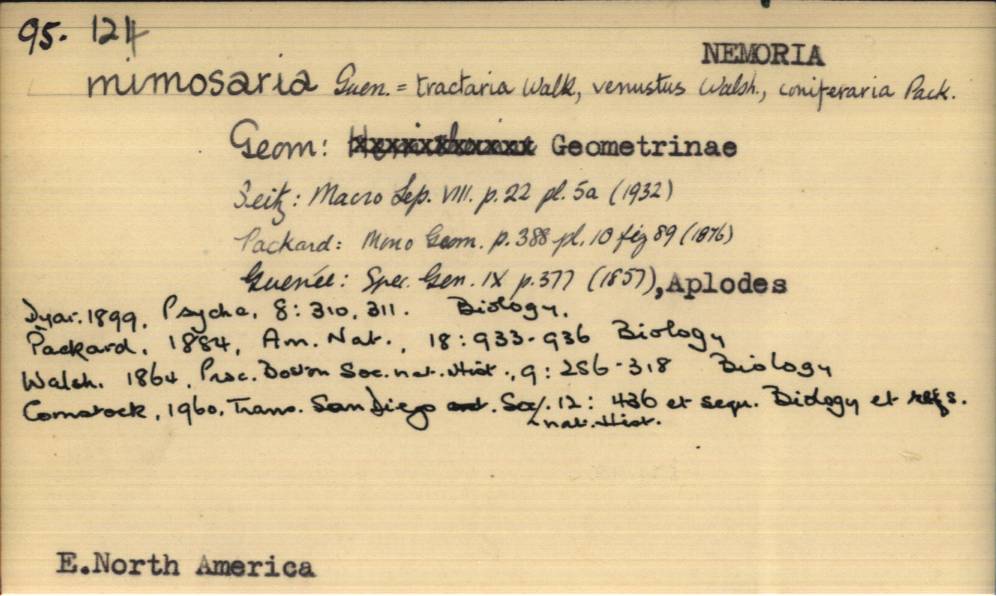 95. 124
NEMORIA
mimosaria Guen. = tractaria Walk, venustus Walsh., coniferaria Pack.
Geom: Geometrinae
Seitz: Macro Lep. VIII. p. 22 pl. 5a (1932)
Packard: Mono Geom. p. 388 pl. 10 fig 89 (1876)
Guenée: Spec. Gen. IX p. 377 (1857), Aplodes
Dyar. 1899, Psyche, 8: 310, 311. Biology.
Packard, 1884, Am. Nat., 18: 933-936 Biology
Walsh. 1864, Proc. Boston Soc. nat. Hist., 9: 286-318 Biology
Comstock, 1960, Trans. San Diego Soc. 12: 436 et sequ. Biology et refs.
nat. Hist.
E. North America